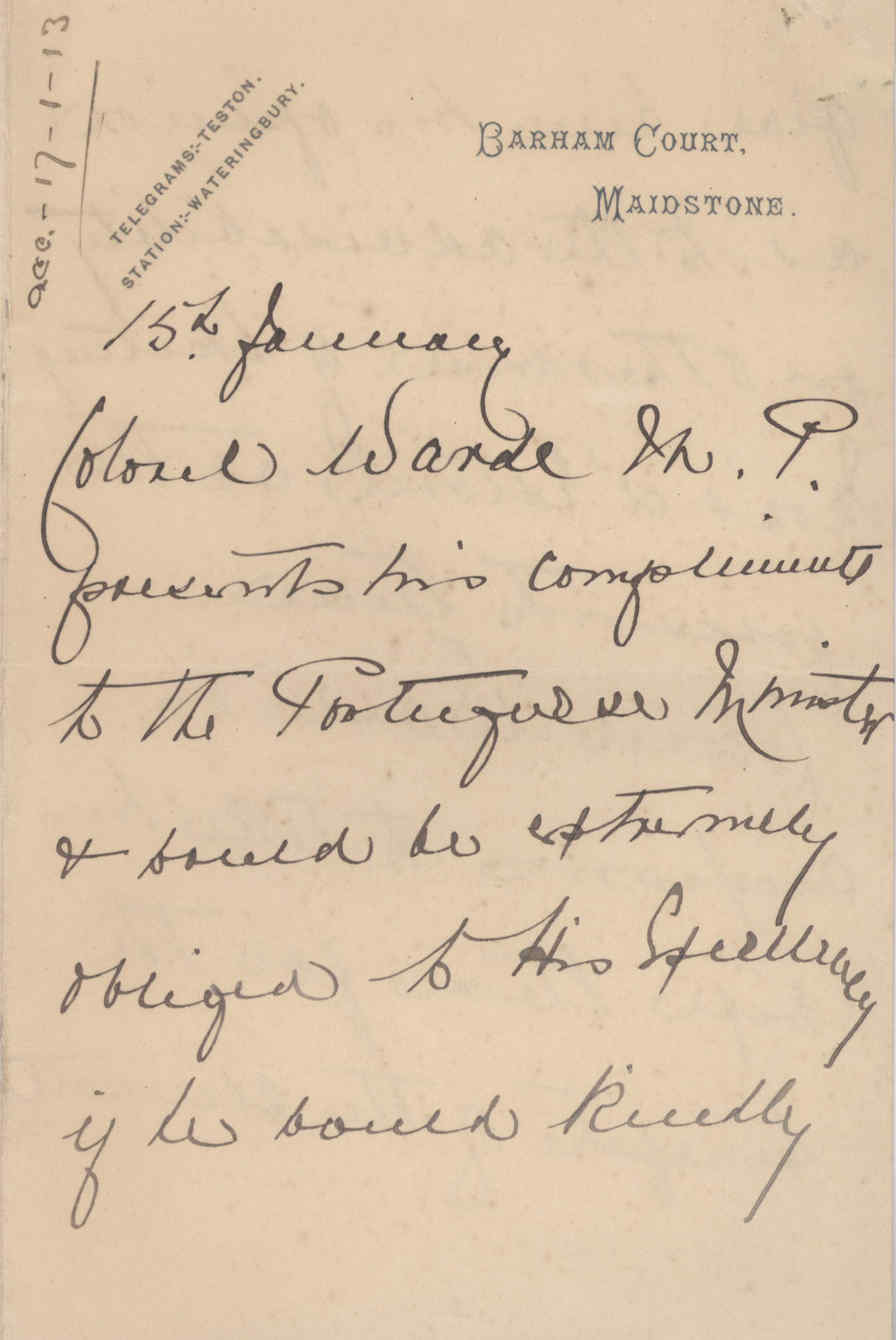 acc. - 17-1-13
TELEGRAMS:-TESTON.
STATION:-WATERINGBURY.
BARHAM COURT,
MAIDSTONE.
15th January
Colonel Warde M. P.
presents his compliments
to the Portuguese Minister
& would be extremely
obliged to His Excellency
if he would kindly